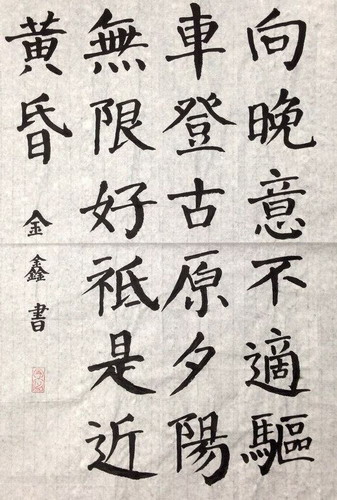 向晚意不適驅
車登古原夕陽
無限好祗是近
黃昏
金鑫書